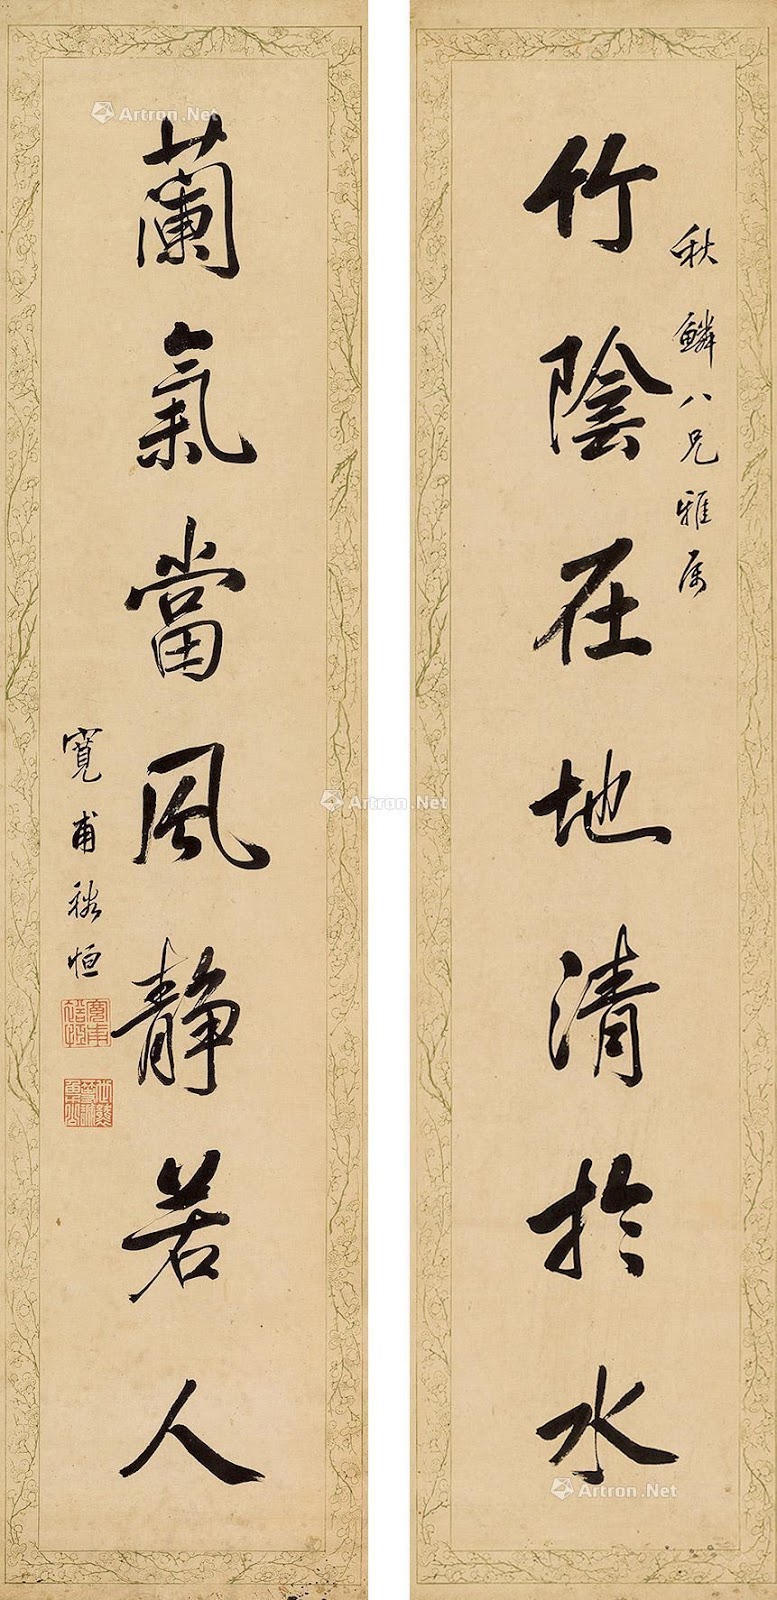 秋鱗八兄雅属
竹陰在地清於水
蘭氣當風静若人
寬甫嵇恒
Artron.Net
Artron.Net
Artron.Net